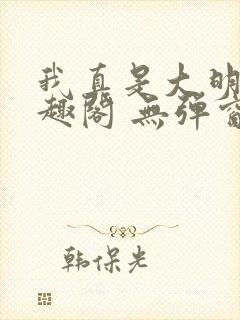 我真是大明
趣閣 無彈窗
韩保光